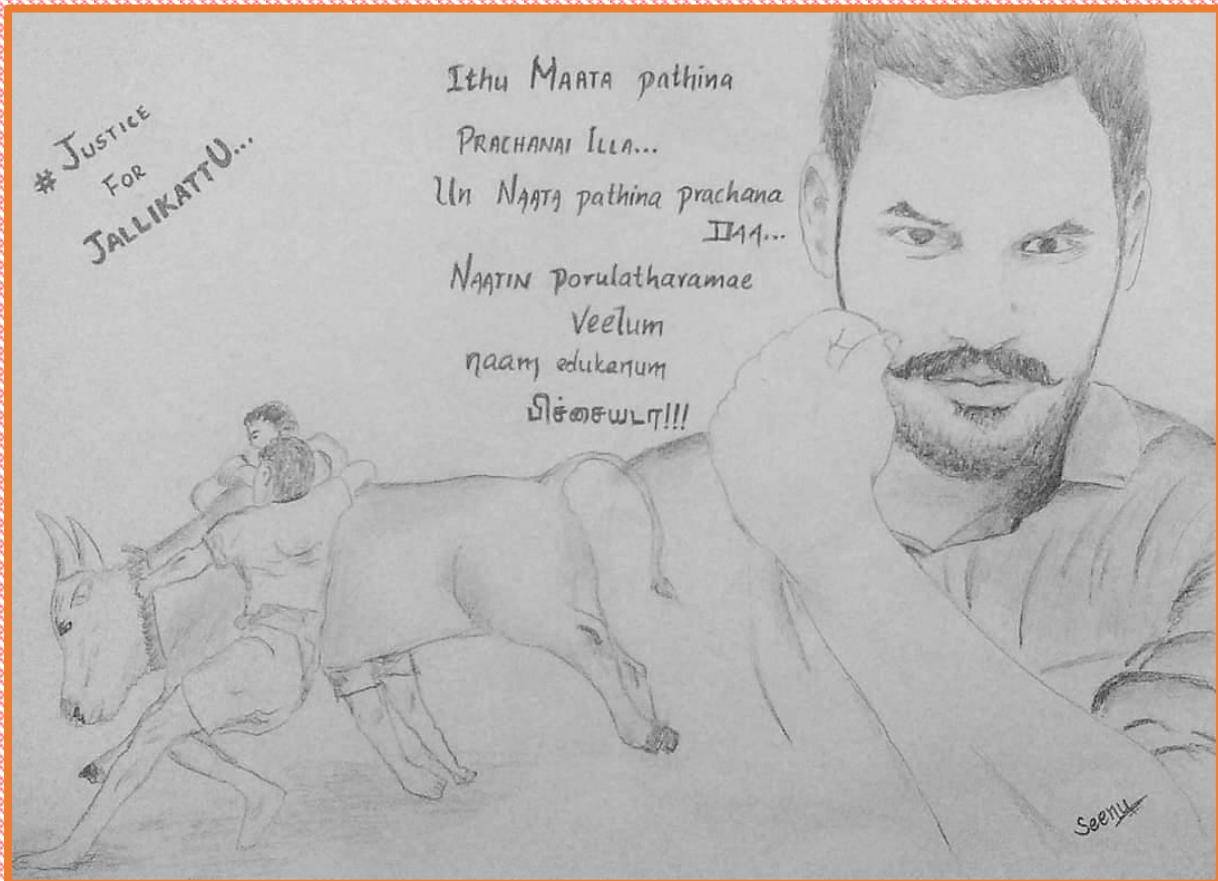 # JUSTICE
FOR
JALLIKATTU...
Ithu MAATA pathina
PRACHANAI ILLA...
Un NAATA pathina prachana
DAA...
NAATIN porulatharamae
Veelum
naam edukanum
பிச்சையடா!!!
Seenu